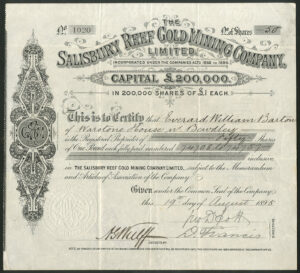 THE
No. 1020 No. of Shares 50
SALISBURY REEF GOLD MINING COMPANY,
LIMITED.
INCORPORATED UNDER THE COMPANIES ACTS, 1862 TO 1890.
CAPITAL £200,000,
IN 200,000 SHARES OF £1 EACH.
This is to Certify that Everard William Barton
of Warstone House Bewdley
is the Registered Proprietor of Fifty Shares
of One Pound each fully paid numbered
inclusive
in THE SALISBURY REEF GOLD MINING COMPANY, LIMITED, subject to the Memorandum
and Articles of Association of the Company.
Given under the Common Seal of the Company,
this 19th day of August 1895
SECRETARY
D Francis